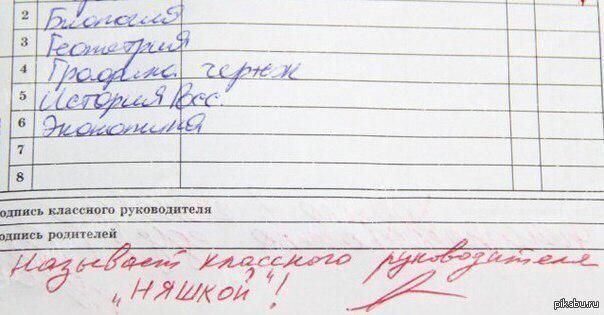 2 Биология
3 Геометрия
4 Графика чертж
5 История Росс.
6 Экономика
7
8
одпись классного руководителя
одпись родителей
Называет классного руководителя
"НЯШКОЙ"!
pikabu.ru